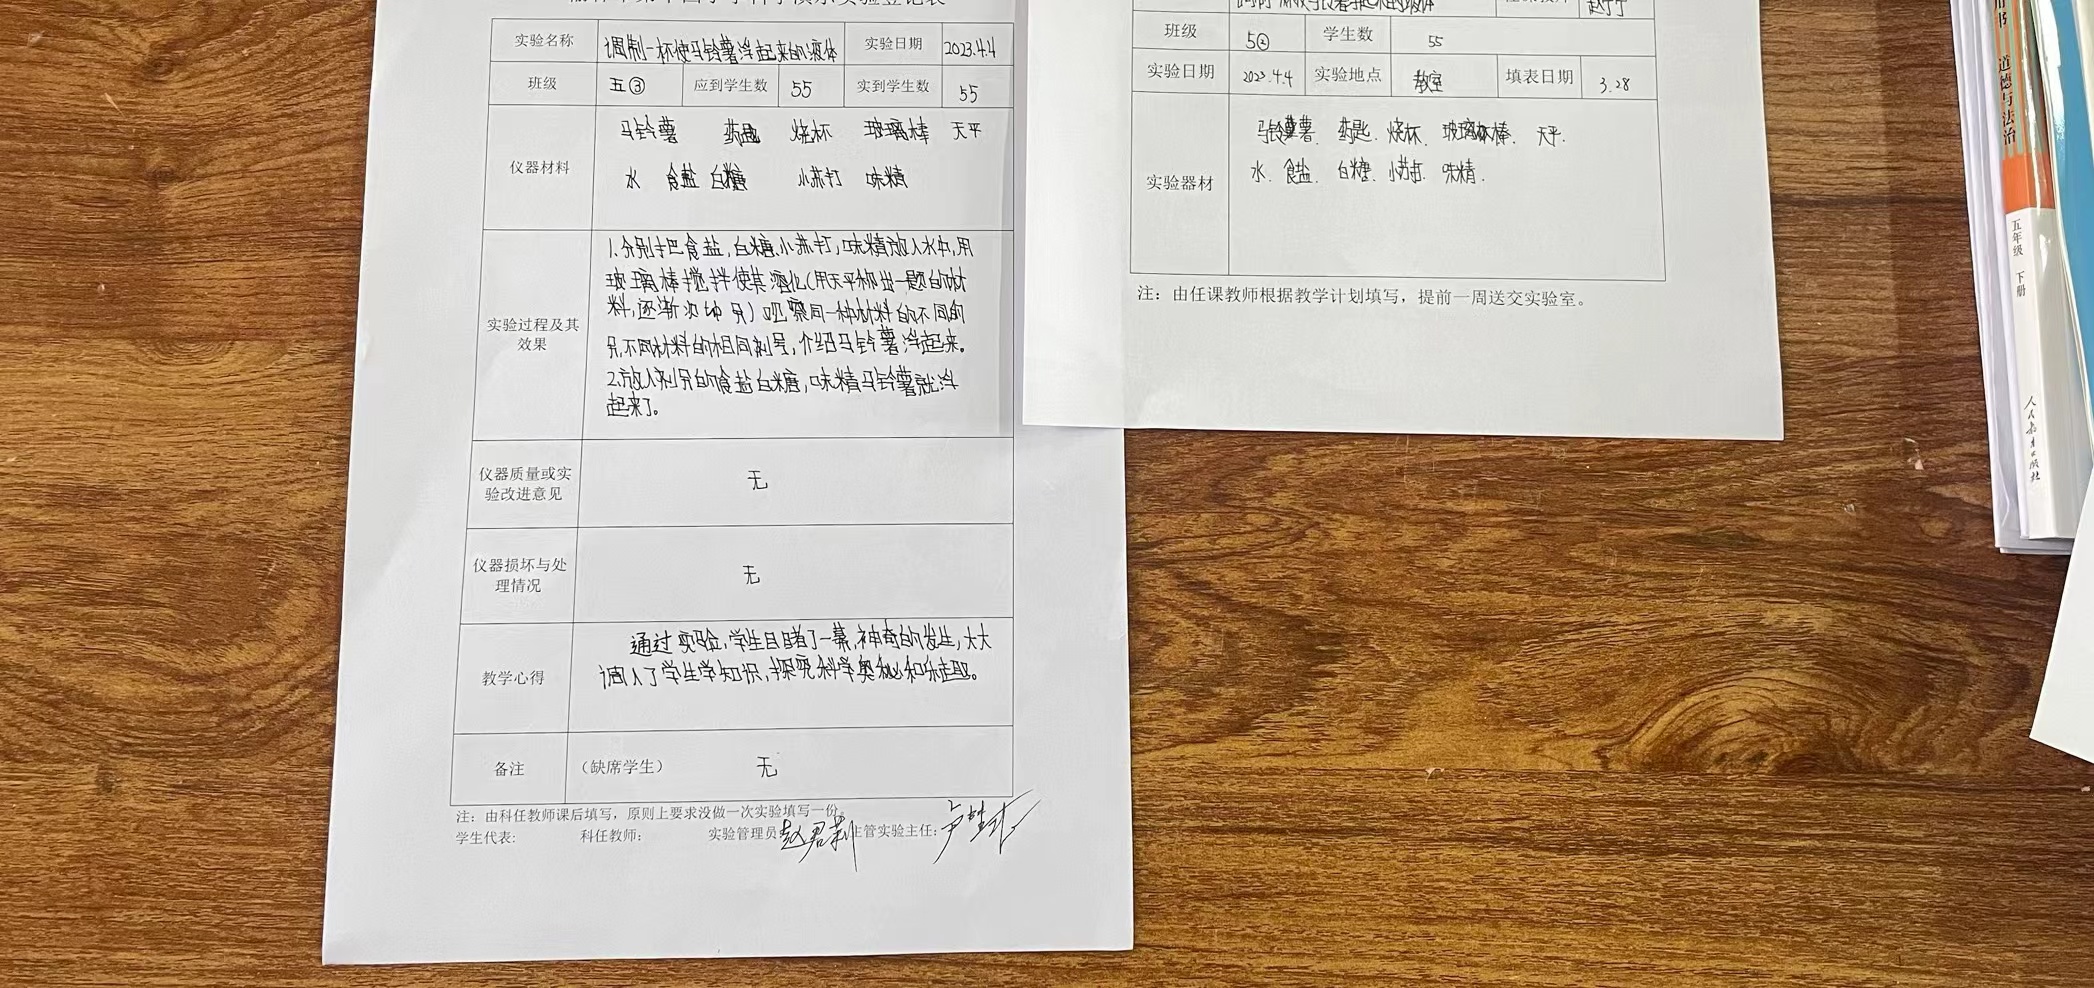 实验名称 调制一杯使马铃薯浮起来的液体 实验日期 2023.4.4
班级 五③ 应到学生数 55 实到学生数 55
仪器材料
马铃薯 药匙 烧杯 玻璃棒 天平
水 食盐 白糖 小苏打 味精
实验过程及其
效果
1.分别把食盐,白糖,小苏打,味精放入水中,用
玻璃棒搅拌使其溶化(用天平称出一题的材
料,逐渐 ) 观察同一种材料的不同的
只,不同材料的相同剂量,介绍马铃薯浮起来。
2.放入 的食盐白糖,味精马铃薯就浮
起来了。
仪器质量或实
验改进意见
无
仪器损坏与处
理情况
无
教学心得
通过实验,学生目睹了一幕,神奇的发生,大大
调入了学生学知识,探究科学奥秘和 趣。
备注 (缺席学生) 无
注:由科任教师课后填写,原则上要求没做一次实验填写一份。
学生代表: 科任教师: 实验管理员 赵君莉 主管实验主任:
班级 5② 学生数 55
实验日期 2023.4.4 实验地点 教室 填表日期 3.28
实验器材
马铃薯、药匙、烧杯、玻璃棒、天平.
水、食盐、白糖、小苏打、味精.
注:由任课教师根据教学计划填写,提前一周送交实验室。
道德与法治
五年级 下册
人民教育出版社